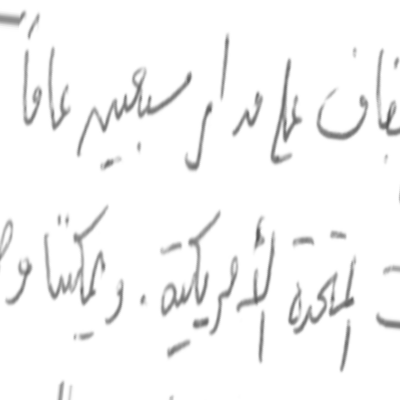 على مدار سبعين عاماً
المتحدة الأمريكية. ويمكننا